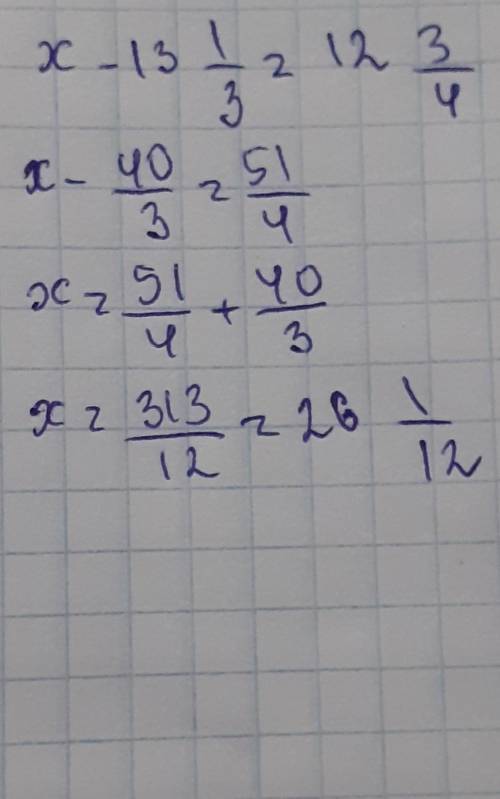 x - 13 1/3 = 12 3/4
x - 40/3 = 51/4
x = 51/4 + 40/3
x = 313/12 = 26 1/12